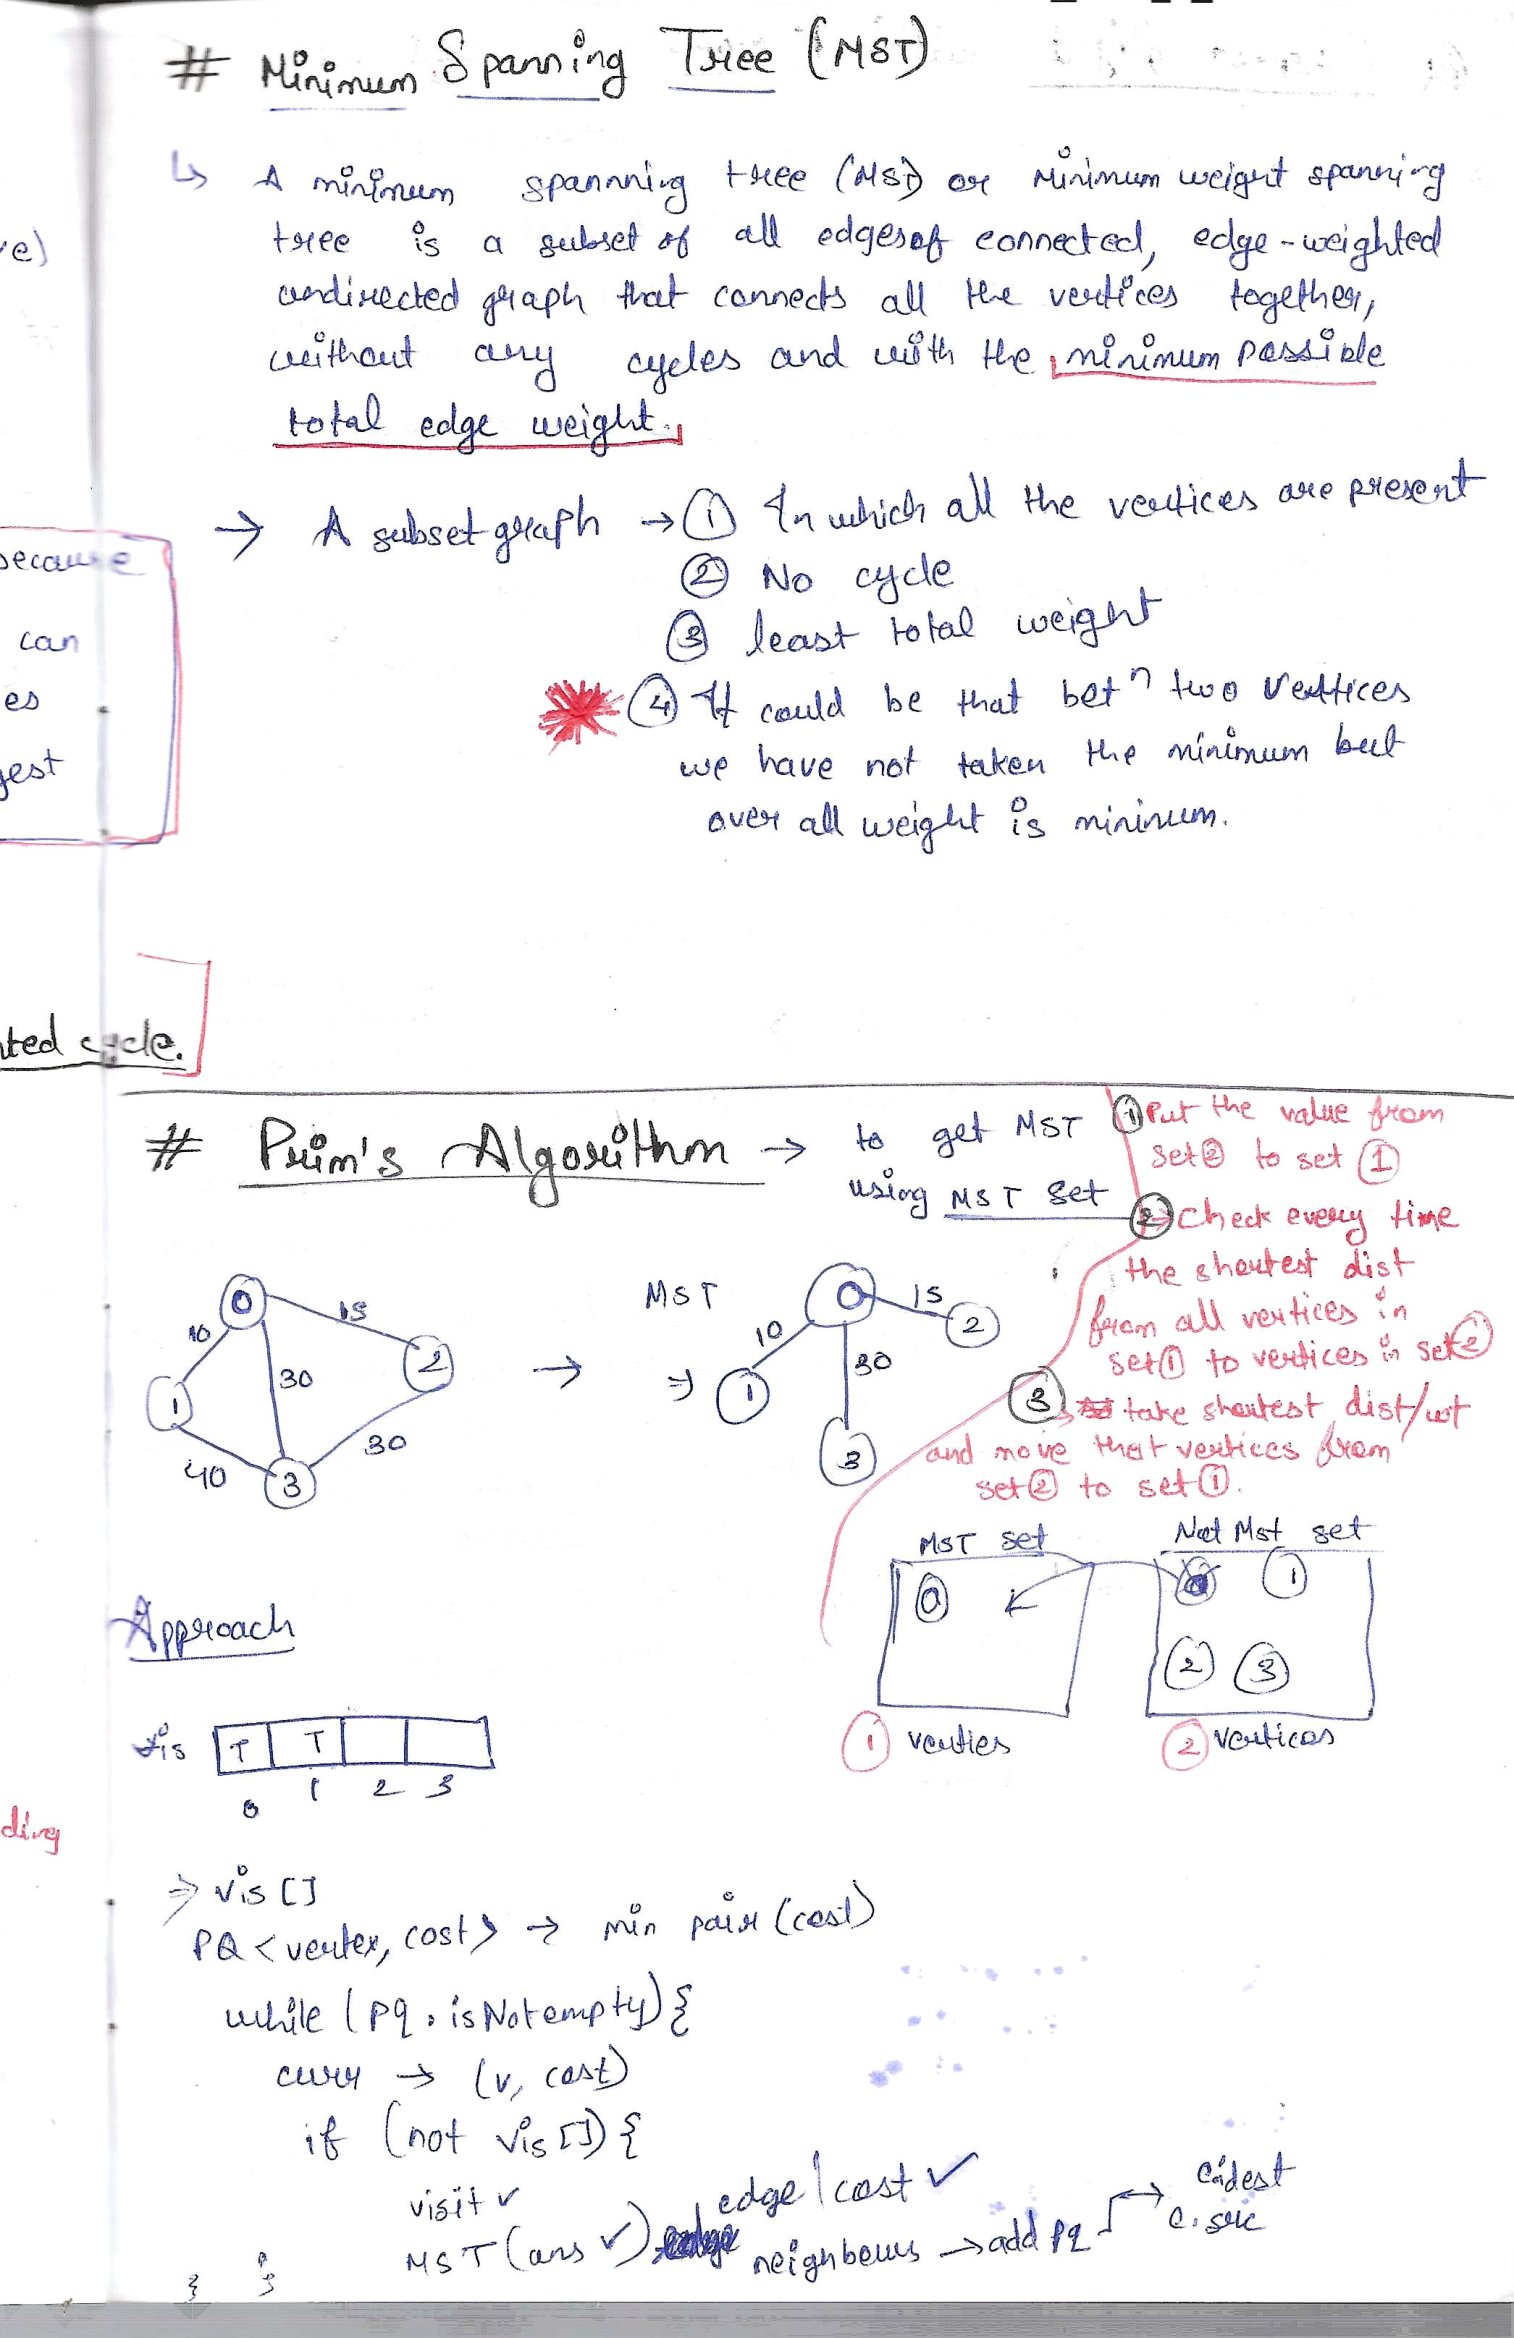 # Minimum Spanning Tree (MST)
↳ A minimum spannning tree (MST) or Minimum weight spanning
tree is a subset of all edges of connected, edge-weighted
undirected graph that connects all the vertices together,
without any cycles and with the minimum possible
total edge weight.
→ A subset graph → ① In which all the vertices are present
② No cycle
③ least total weight
④ It could be that betn two vertices
we have not taken the minimum but
over all weight is minimum.
re)
because
can
es
gest
nted cycle.
# Prim's Algorithm → to get MST
using MST set
① Put the value from
set② to set ①
② → Check every time
the shortest dist
from all vertices in
set① to vertices in set②
③ → take shortest dist/wt
and move that vertices from
set② to set①.
0
10
15
30
1
2
40
30
3
→
MST
⇒
0
10
15
30
1
2
3
MST set
0
① verties
Not Mst set
0 1
2 3
② vertices
Approach
vis T T
0 1 2 3
ding
⇒ vis []
PQ <vertex, cost> → min pair (cost)
while (pq.isNotempty) {
curr → (v, cost)
if (not vis[]) {
visit ✓
MST (ans ✓) edge | cost ✓
neighbours → add pq → e.dest
e.src
} }